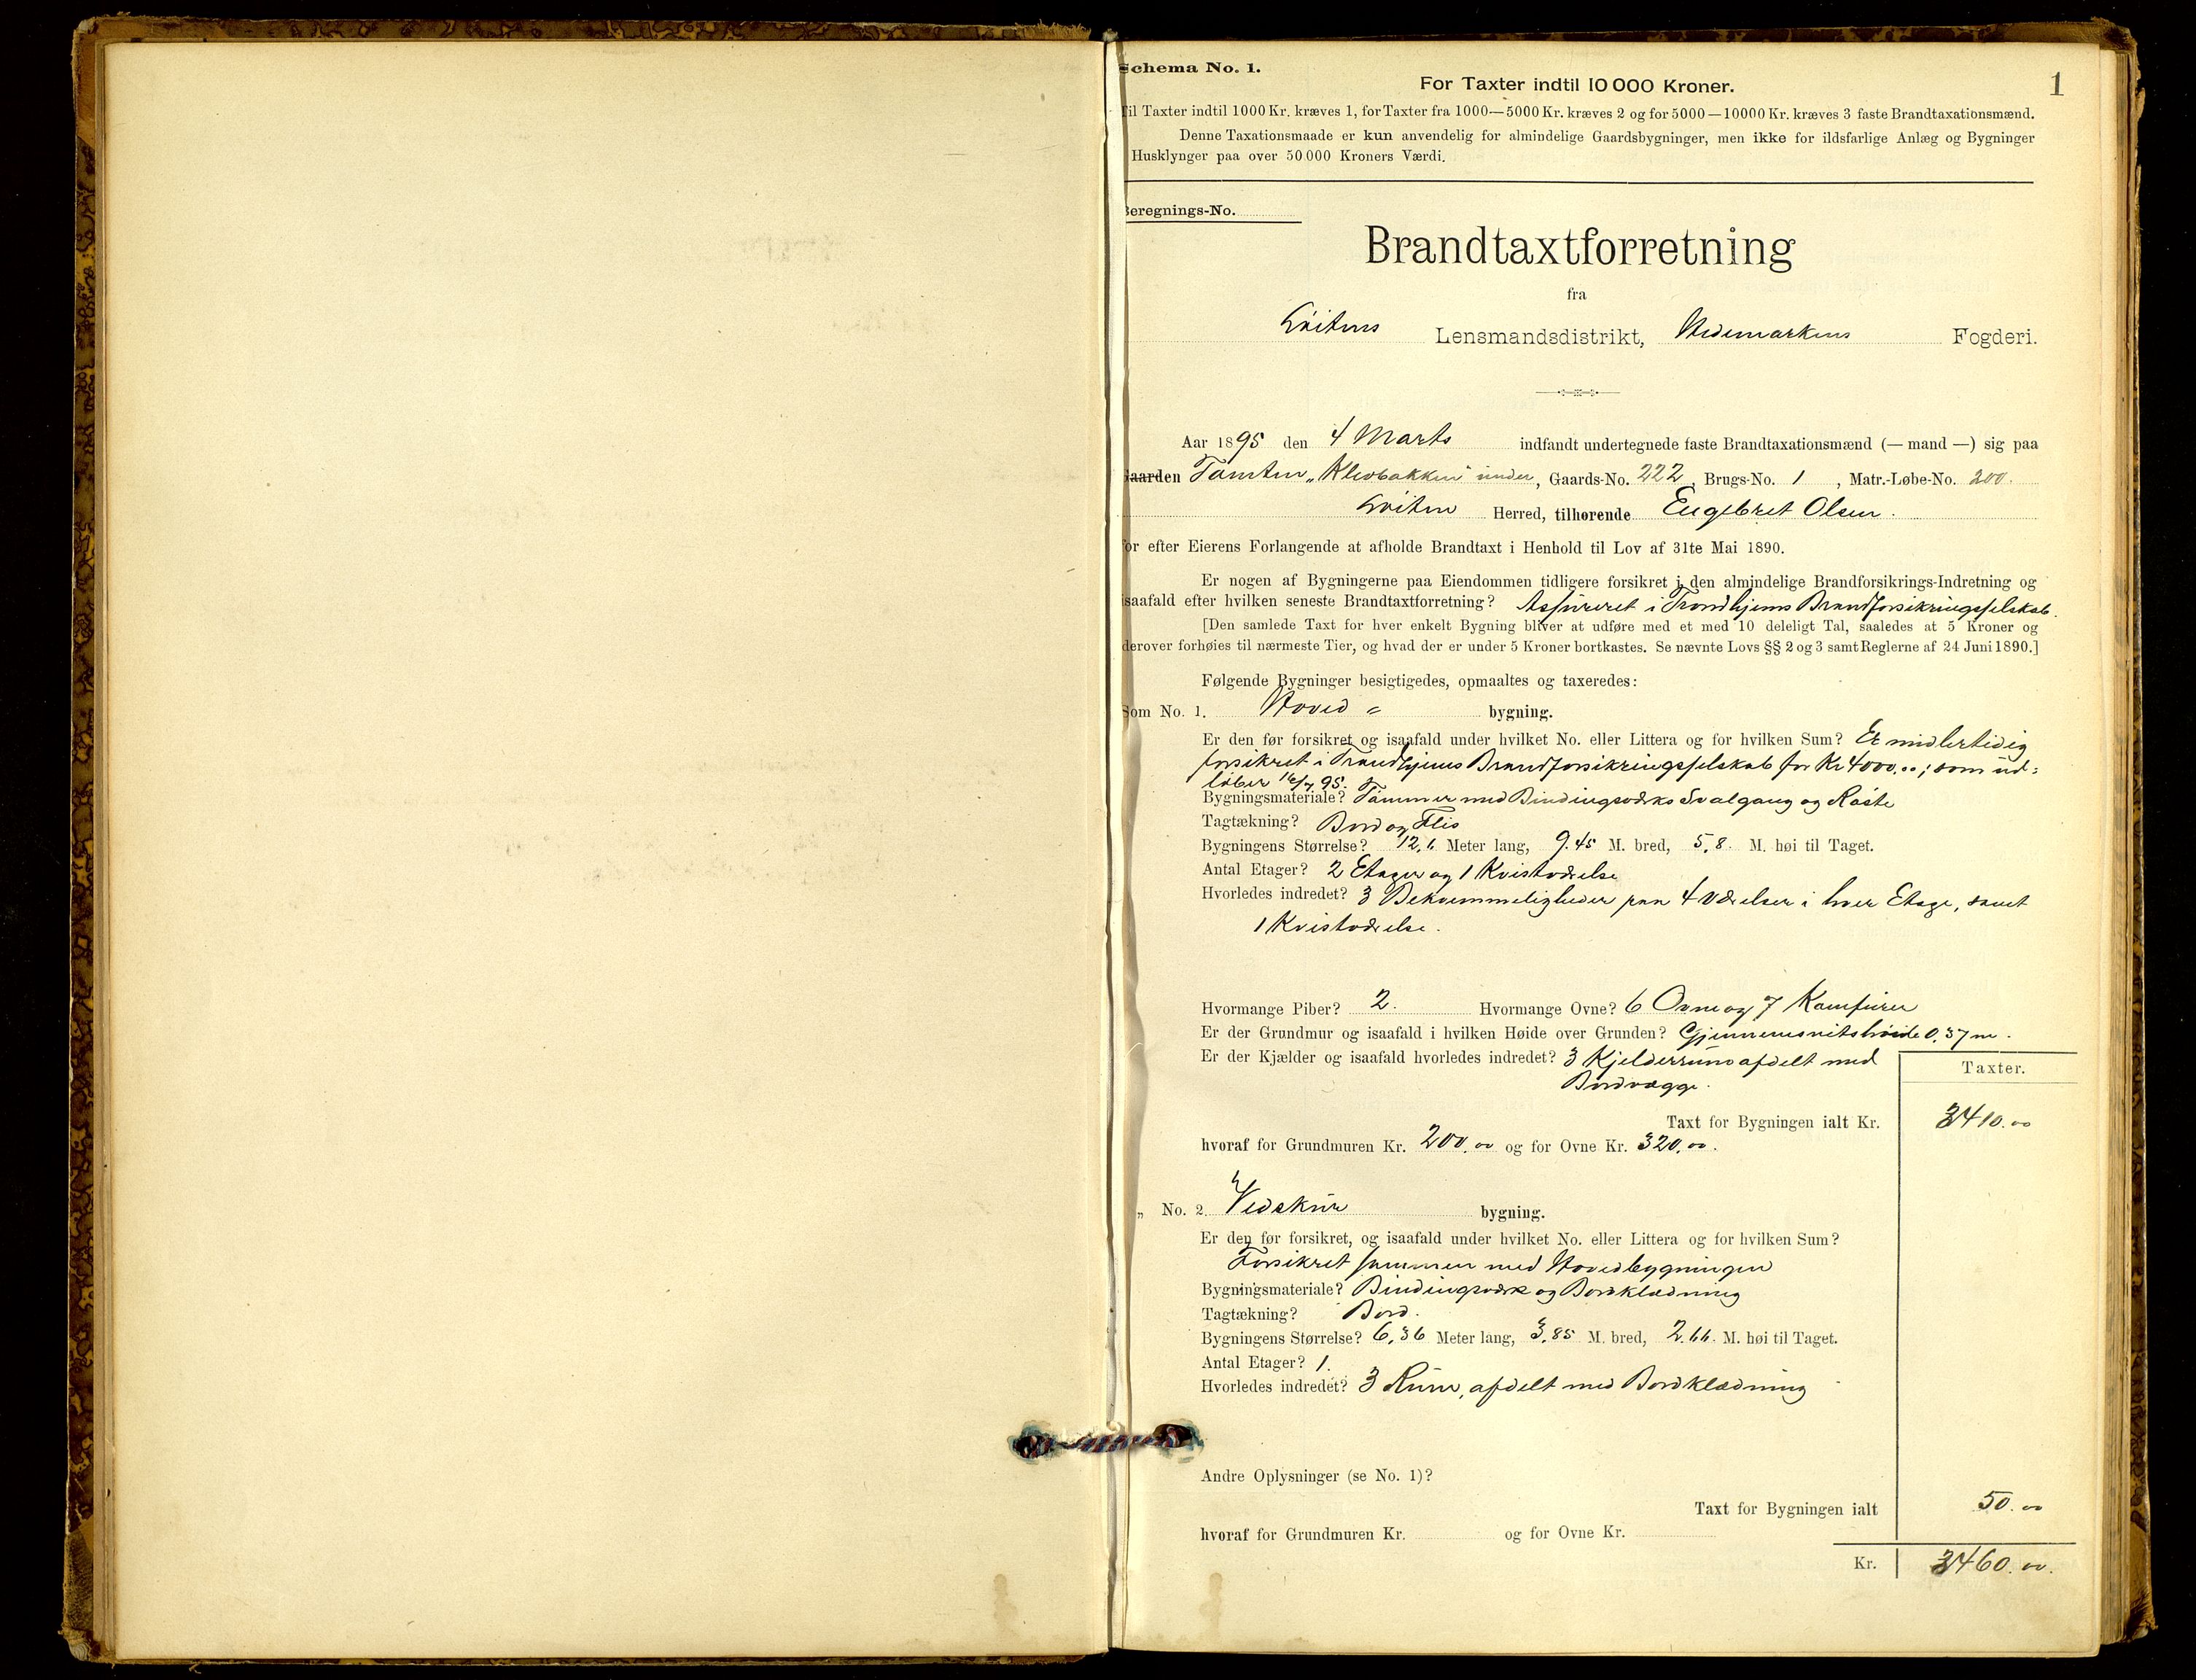 Schema No. 1.
1
For Taxter indtil 10 000 Kroner.
Til Taxter indtil 1000 Kr. kræves 1, for Taxter fra 1000—5000 Kr. kræves 2 og for 5000—10000 Kr. kræves 3 faste Brandtaxationsmænd.
Denne Taxationsmaade er kun anvendelig for almindelige Gaardsbygninger, men ikke for ildsfarlige Anlæg og Bygninger
Husklynger paa over 50 000 Kroners Værdi.
Beregnings-No.
Brandtaxtforretning
fra
Löitens Lensmandsdistrikt, Hedemarkens Fogderi.
Aar 1895 den 4 Marts indfandt undertegnede faste Brandtaxationsmænd (— mand —) sig paa
Gaarden Tomten „Klevbakken" under, Gaards-No. 222, Brugs-No. 1, Matr.-Løbe-No. 200.
Löiten Herred, tilhørende Engebret Olsen.
for efter Eierens Forlangende at afholde Brandtaxt i Henhold til Lov af 31te Mai 1890.
Er nogen af Bygningerne paa Eiendommen tidligere forsikret i den almindelige Brandforsikrings-Indretning og
isaafald efter hvilken seneste Brandtaxtforretning? Assureret i Trondhjems Brandforsikringsselskab.
[Den samlede Taxt for hver enkelt Bygning bliver at udføre med et med 10 deleligt Tal, saaledes at 5 Kroner og
derover forhøies til nærmeste Tier, og hvad der er under 5 Kroner bortkastes. Se nævnte Lovs §§ 2 og 3 samt Reglerne af 24 Juni 1890.]
Følgende Bygninger besigtigedes, opmaaltes og taxeredes:
Som No. 1. Hoved = bygning.
Er den før forsikret og isaafald under hvilket No. eller Littera og for hvilken Sum? Er midlertidig
forsikret i Trondhjems Brandforsikringsselskab for Kr 4000.00; som ud=
löber 16/7 95.
Bygningsmateriale? Tömmer med Bindingsværks Svalgang og Röste
Tagtækning? Bord og Flis
Bygningens Størrelse? 12,6 Meter lang, 9.45 M. bred, 5,8 M. høi til Taget.
Antal Etager? 2 Etager og 1 Kvistværelse
Hvorledes indredet? 3 Bekvemmeligheder paa 4 Værelser i hver Etage, samt
1 Kvistværelse.
Hvormange Piber? 2. Hvormange Ovne? 6 Ovne og 7 Komfurer
Er der Grundmur og isaafald i hvilken Høide over Grunden? Gjennemsnitshöide 0,37 m.
Er der Kjælder og isaafald hvorledes indredet? 3 Kjelderrum afdelt med
Bordvægge.
Taxter.
Taxt for Bygningen ialt Kr. 3410.00
hvoraf for Grundmuren Kr. 200.00 og for Ovne Kr. 320.00.
„ No. 2. Vedskur bygning.
Er den før forsikret, og isaafald under hvilket No. eller Littera og for hvilken Sum?
Forsikret sammen med Hovedbygningen
Bygningsmateriale? Bindingsværk og Bordklædning
Tagtækning? Bord.
Bygningens Størrelse? 6,36 Meter lang, 3,85 M. bred, 2.66 M. høi til Taget.
Antal Etager? 1.
Hvorledes indredet? 3 Rum, afdelt med Bordklædning
Andre Oplysninger (se No. 1)?
Taxt for Bygningen ialt 50.00
hvoraf for Grundmuren Kr. og for Ovne Kr.
Kr. 3460.00.